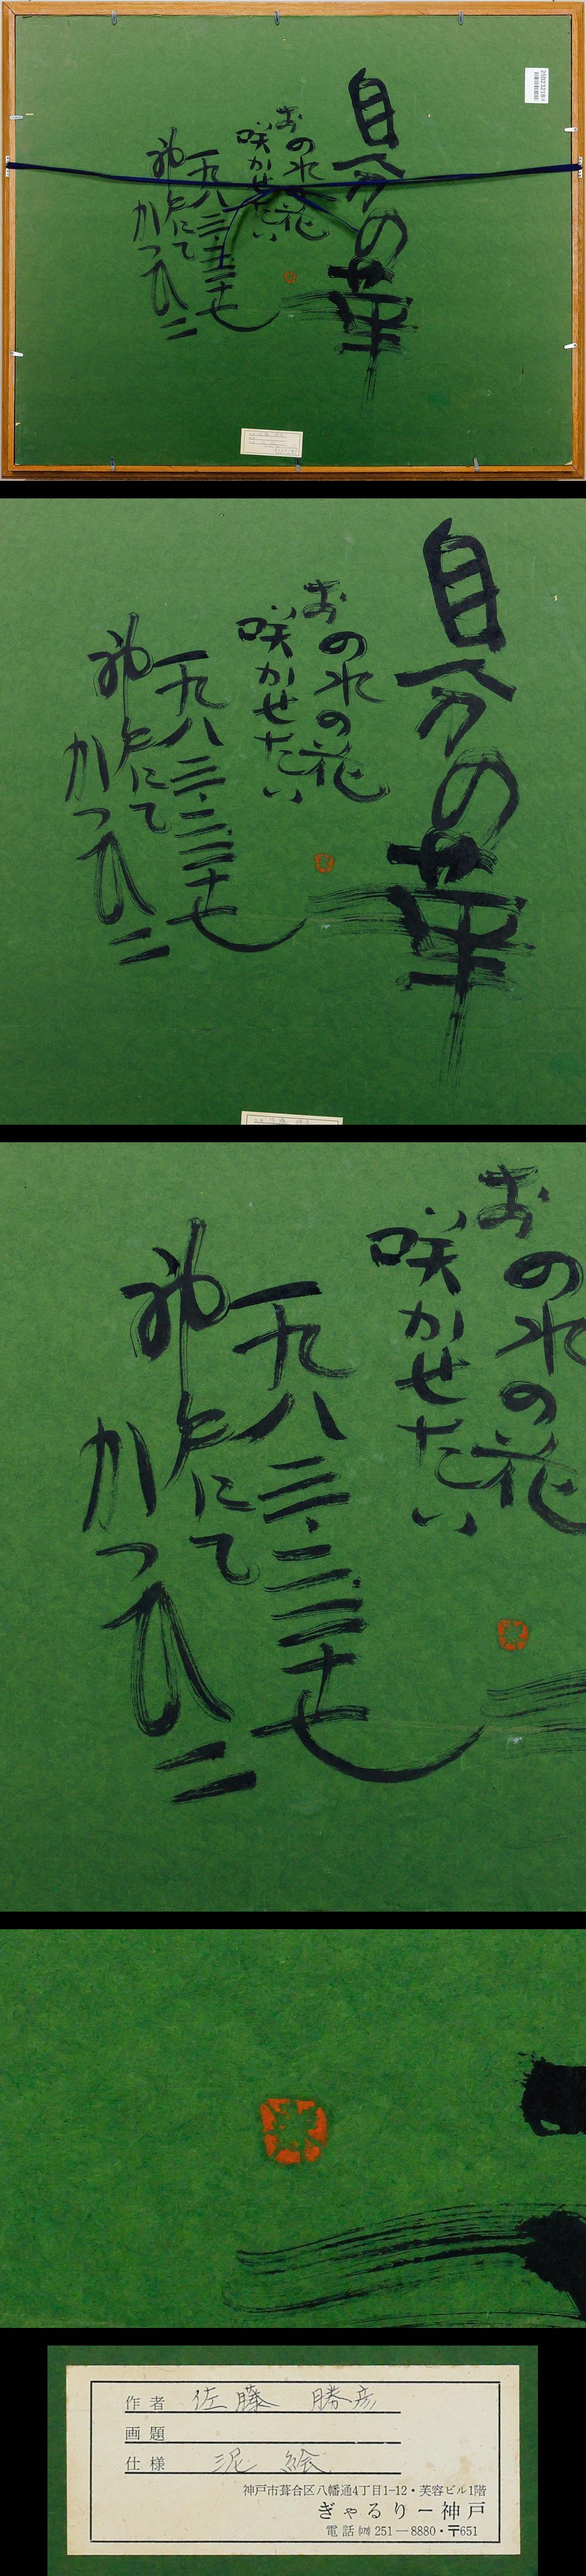 自分の華
おのれの花
咲かせたい
一九八三・三・二十七
神戸にて
かつひこ
自分の華
おのれの花
咲かせたい
一九八三・三・二十七
神戸にて
かつひこ
おのれの花
咲かせたい
一九八三・三・二十七
神戸にて
かつひこ
作者 佐藤 勝彦
画題
仕様 泥絵
神戸市葺合区八幡通4丁目1-12・芙蓉ビル1階
ぎゃるりー神戸
電話㈹251—8880・〒651